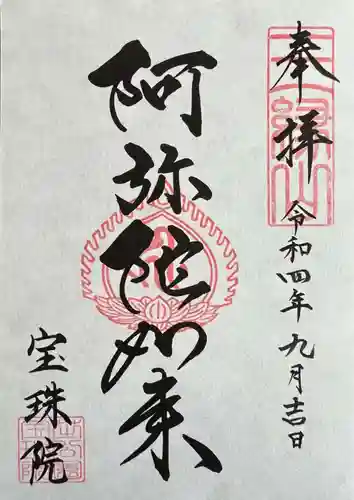 奉拝
令和四年九月吉日
阿弥陀如来
宝珠院